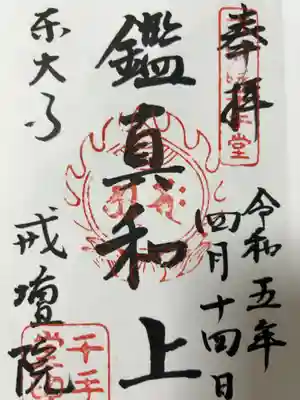 奉拝
令和五年
四月十四日
鑑真和上
东大寺
戒壇院
千手
堂